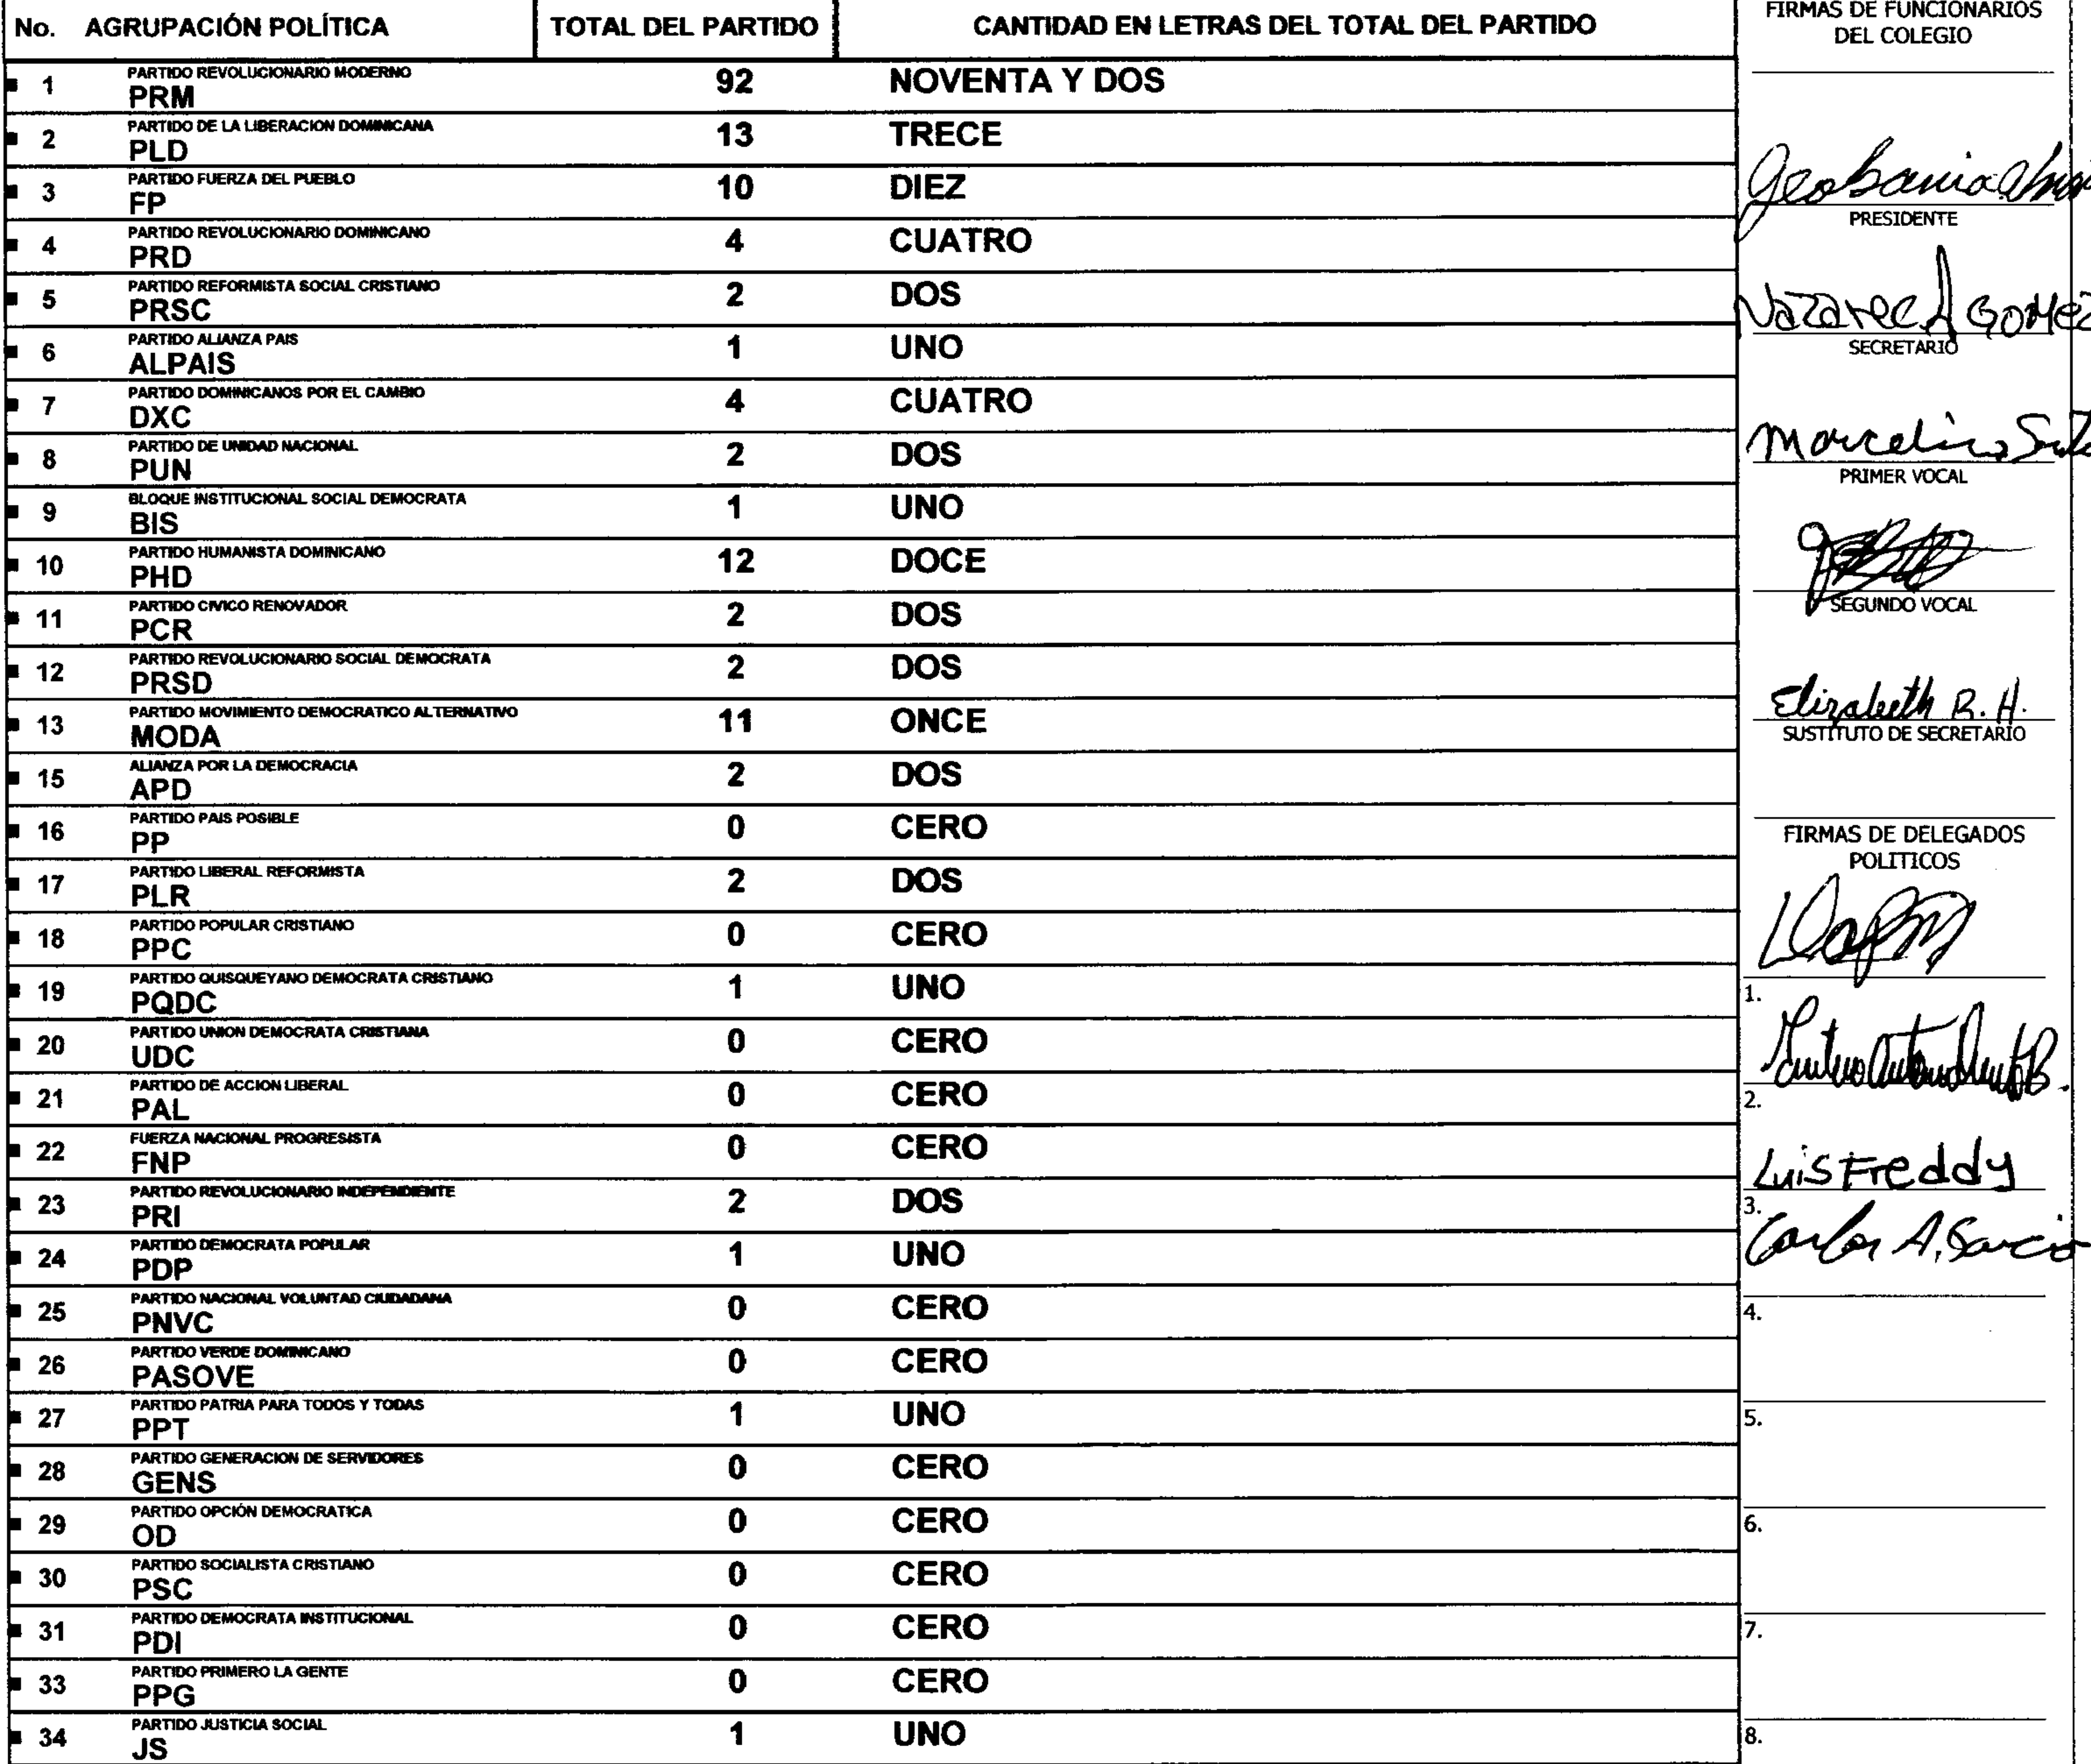 No. AGRUPACIÓN POLÍTICA TOTAL DEL PARTIDO CANTIDAD EN LETRAS DEL TOTAL DEL PARTIDO
1 PARTIDO REVOLUCIONARIO MODERNO
PRM 92 NOVENTA Y DOS
2 PARTIDO DE LA LIBERACION DOMINICANA
PLD 13 TRECE
3 PARTIDO FUERZA DEL PUEBLO
FP 10 DIEZ
4 PARTIDO REVOLUCIONARIO DOMINICANO
PRD 4 CUATRO
5 PARTIDO REFORMISTA SOCIAL CRISTIANO
PRSC 2 DOS
6 PARTIDO ALIANZA PAIS
ALPAIS 1 UNO
7 PARTIDO DOMINICANOS POR EL CAMBIO
DXC 4 CUATRO
8 PARTIDO DE UNIDAD NACIONAL
PUN 2 DOS
9 BLOQUE INSTITUCIONAL SOCIAL DEMOCRATA
BIS 1 UNO
10 PARTIDO HUMANISTA DOMINICANO
PHD 12 DOCE
11 PARTIDO CIVICO RENOVADOR
PCR 2 DOS
12 PARTIDO REVOLUCIONARIO SOCIAL DEMOCRATA
PRSD 2 DOS
13 PARTIDO MOVIMIENTO DEMOCRATICO ALTERNATIVO
MODA 11 ONCE
15 ALIANZA POR LA DEMOCRACIA
APD 2 DOS
16 PARTIDO PAIS POSIBLE
PP 0 CERO
17 PARTIDO LIBERAL REFORMISTA
PLR 2 DOS
18 PARTIDO POPULAR CRISTIANO
PPC 0 CERO
19 PARTIDO QUISQUEYANO DEMOCRATA CRISTIANO
PQDC 1 UNO
20 PARTIDO UNION DEMOCRATA CRISTIANA
UDC 0 CERO
21 PARTIDO DE ACCION LIBERAL
PAL 0 CERO
22 FUERZA NACIONAL PROGRESISTA
FNP 0 CERO
23 PARTIDO REVOLUCIONARIO INDEPENDIENTE
PRI 2 DOS
24 PARTIDO DEMOCRATA POPULAR
PDP 1 UNO
25 PARTIDO NACIONAL VOLUNTAD CIUDADANA
PNVC 0 CERO
26 PARTIDO VERDE DOMINICANO
PASOVE 0 CERO
27 PARTIDO PATRIA PARA TODOS Y TODAS
PPT 1 UNO
28 PARTIDO GENERACION DE SERVIDORES
GENS 0 CERO
29 PARTIDO OPCIÓN DEMOCRATICA
OD 0 CERO
30 PARTIDO SOCIALISTA CRISTIANO
PSC 0 CERO
31 PARTIDO DEMOCRATA INSTITUCIONAL
PDI 0 CERO
33 PARTIDO PRIMERO LA GENTE
PPG 0 CERO
34 PARTIDO JUSTICIA SOCIAL
JS 1 UNO
FIRMAS DE FUNCIONARIOS
DEL COLEGIO
PRESIDENTE
GOMEZ
SECRETARIO
Marcelino
PRIMER VOCAL
SEGUNDO VOCAL
Elizabeth R. H.
SUSTITUTO DE SECRETARIO
FIRMAS DE DELEGADOS
POLITICOS
1.
2.
Luis Freddy
3.
Carlos A.
4.
5.
6.
7.
8.